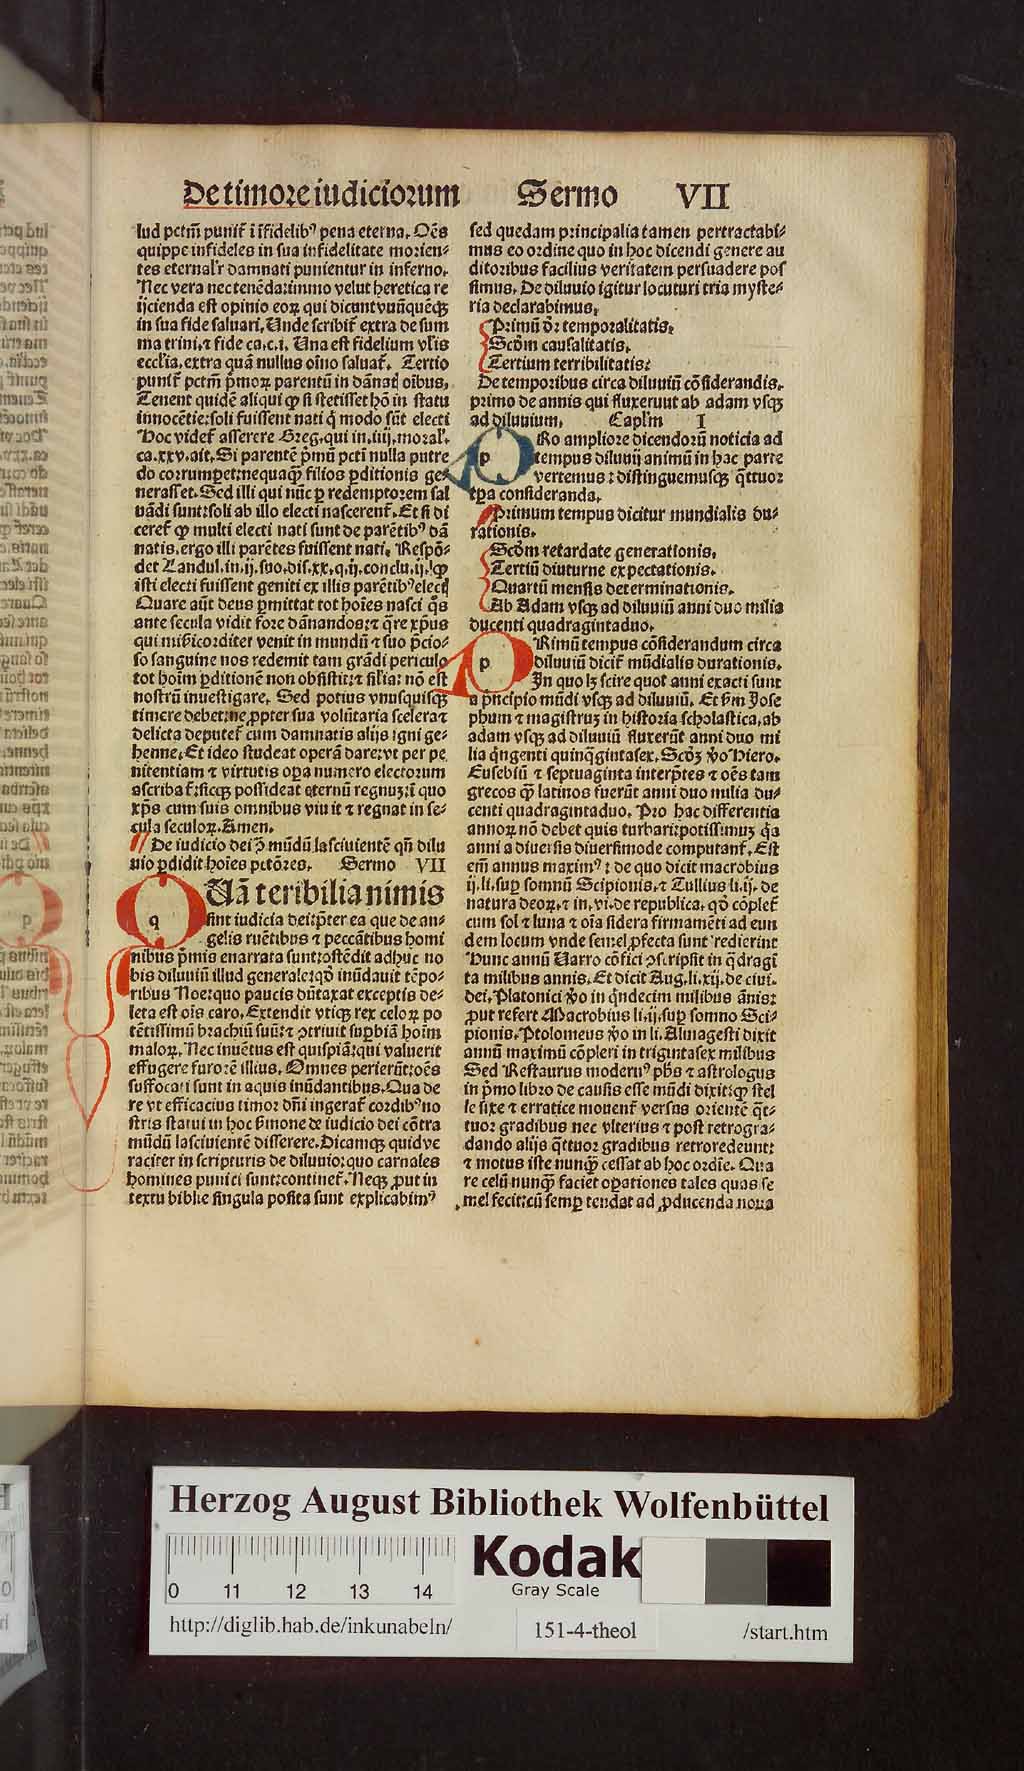 De timore iudiciorum Sermo VII
lud pctm̄ punit᷑ ī īfidelibꝰ pena eterna. Oēs
quippe infideles in sua infidelitate morien-
tes eternalr̄ damnati punientur in inferno.
Nec vera nec tenēda: immo velut heretica re
ijcienda est opinio eoꝝ qui dicunt vnūquēqꝫ
in sua fide saluari. Unde scribit᷑ extra de sum
ma trini. ⁊ fide ca. c. i. Una est fidelium vl̄is
eccl̄ia. extra quā nullus oīno saluat᷑. Tertio
punit᷑ pctm̄ p̄moꝝ parentū in dānatꝭ oībus.
Tenent quidē aliqui ꝙ si stetisset hō in statu
innocētie: soli fuissent nati q̇ modo sūt electi
Hoc videt᷑ asserere Greg. qui in. iiij. moral᷑.
ca. xxv. ait. Si parentē p̄mū pcti nulla putre
do corrumꝑet: nequaqꝫ filios ꝑditionis ge-
nerasset. Sed illi qui nūc ꝑ redemptorem sal
uādi sunt: soli ab illo electi nascerent᷑. Et si di
ceret᷑ ꝙ multi electi nati sunt de parētibꝰ dā
natis. ergo illi parētes fuissent nati. Respō-
det Landul. in. ij. suo. dis. xx. q. ij. conclu. ij. ꝙ
isti electi fuissent geniti ex illis parētibꝰ electꝭ
Quare aūt deus ꝑmittat tot hoīes nasci q̄s
ante secula vidit fore dānandos: ⁊ q̄re xp̄us
qui mīs̄icorditer venit in mundū ⁊ suo p̄cio-
so sanguine nos redemit tam grādi periculo
tot hoīm ꝑditionē non obsistit: ⁊ sīl̄ia: nō est
nostrū inuestigare. Sed potius vnusquisqꝫ
timere debet: ne ꝓpter sua volūtaria scelera ⁊
delicta deputet᷑ cum damnatis alijs igni ge-
henne. Et ideo studeat operā dare: vt per pe
nitentiam ⁊ virtutis oꝑa numero electorum
ascribat᷑: sicqꝫ possideat eternū regnuꝫ: ī quo
xp̄s cum suis omnibus viuit ⁊ regnat in se-
cula seculoꝝ. Amen.
De iudicio dei ꝙ mūdū lasciuientē qn̄ dilu
uio ꝑdidit hoīes pctōres. Sermo VII
q Uā teribilia nimis
sint iudicia dei: p̄ter ea que de an-
gelis ruētibus ⁊ peccātibus homi
nibus p̄mis enarrata sunt: ostēdit adhuc no
bis diluuiū illud generale: qḋ inūdauit tēpo-
ribus Noe: quo paucis dūtaxat exceptis de-
leta est oīs caro. Extendit vtiqꝫ rex celoꝝ po
tētissimū brachiū suū: ⁊ ꝯtriuit suꝑbiā hoīm
maloꝝ. Nec inuētus est quispiā: qui valuerit
effugere furorē illius. Omnes perierūt: oēs
suffocati sunt in aquis inūdantibus. Qua de
re vt efficacius timor dn̄i ingerat᷑ cordibꝰ no
stris statui in hoc ẜmone de iudicio dei cōtra
mūdū lasciuientē disserere. Dicamqꝫ quid ve
raciter in scripturis de diluuio: quo carnales
homines punici sunt: continet᷑. Neqꝫ ꝓut in
textu biblie singula posita sunt explicabimꝰ
sed quedam principalia tamen pertractabi-
mus eo ordine quo in hoc dicendi genere au
ditoribus facilius veritatem persuadere pos
simus. De diluuio igitur locuturi tria myste-
ria declarabimus.
Primū dr̄: temporalitatis.
Scōm causalitatis.
Tertium terribilitatis:
De temporibus circa diluuiū cōsiderandis.
primo de annis qui fluxerunt ab adam vsqꝫ
ad diluuium. Capl̄m I
p Ro ampliore dicendorū noticia ad
tempus diluuij animū in hac parte
vertemus: distinguemusqꝫ q̄ttuor
tꝑa consideranda.
Primum tempus dicitur mundialis du-
rationis.
Scōm retardate generationis.
Tertiū diuturne expectationis.
Quartū mensis determinationis.
Ab Adam vsqꝫ ad diluuiū anni duo milia
ducenti quadragintaduo.
p Rimū tempus cōsiderandum circa
diluuiū dicit᷑ mūdialis durationis.
In quo lꝫ scire quot anni exacti sunt
a p̄ncipio mūdi vsqꝫ ad diluuiū. Et ẜm Jose
phum ⁊ magistruꝫ in historia scholastica, ab
adam vsqꝫ ad diluuiū fluxerūt anni duo mi
lia q̄ngenti quinq̄gintasex. Scōꝫ ꝟo Hiero.
Eusebiū ⁊ septuaginta interp̄tes ⁊ oēs tam
grecos qꝫ latinos fuerūt anni duo milia du-
centi quadragintaduo. Pro hac differentia
annoꝝ nō debet quis turbari: potissimuꝫ q̇a
anni a diuersis diuersimode computant᷑. Est
em̄ annus maximꝰ: de quo dicit macrobius
ij. li. suꝑ somnū Scipionis. ⁊ Tullius li. ij. de
natura deoꝝ. ⁊ in. vi. de republica. qḋ cōplet᷑
cum sol ⁊ luna ⁊ oīa sidera firmamēti ad eun
dem locum vnde semel ꝓfecta sunt redierint
Hunc annū Uarro cōfici ꝯscripsit in q̄dragī
ta milibus annis. Et dicit Aug. li. xij. de ciui.
dei. Platonici ꝟo in q̇ndecim milibus ānis:
ꝓut refert Macrobius li. ij. suꝑ somno Sci-
pionis. Ptolomeus ꝟo in li. Almagesti dixit
annū maximū cōpleri in trigintasex milibus
Sed Restaurus modernꝰ ph̄s ⁊ astrologus
in p̄mo libro de causis esse mūdi dixit: ꝙ stel
le fixe ⁊ erratice mouent᷑ versus orientē q̄t-
tuor gradibus nec vlterius ⁊ post retrogra-
dando alijs q̄ttuor gradibus retroredeunt:
⁊ motus iste nunqꝫ cessat ab hoc ordīe. Qua
re celū nunqꝫ faciet oꝑationes tales quas se
mel fecit: cū semꝑ tendat ad ꝓducenda noua
Herzog August Bibliothek Wolfenbüttel
0 11 12 13 14
Kodak
Gray Scale
http://diglib.hab.de/inkunabeln/ 151-4-theol /start.htm